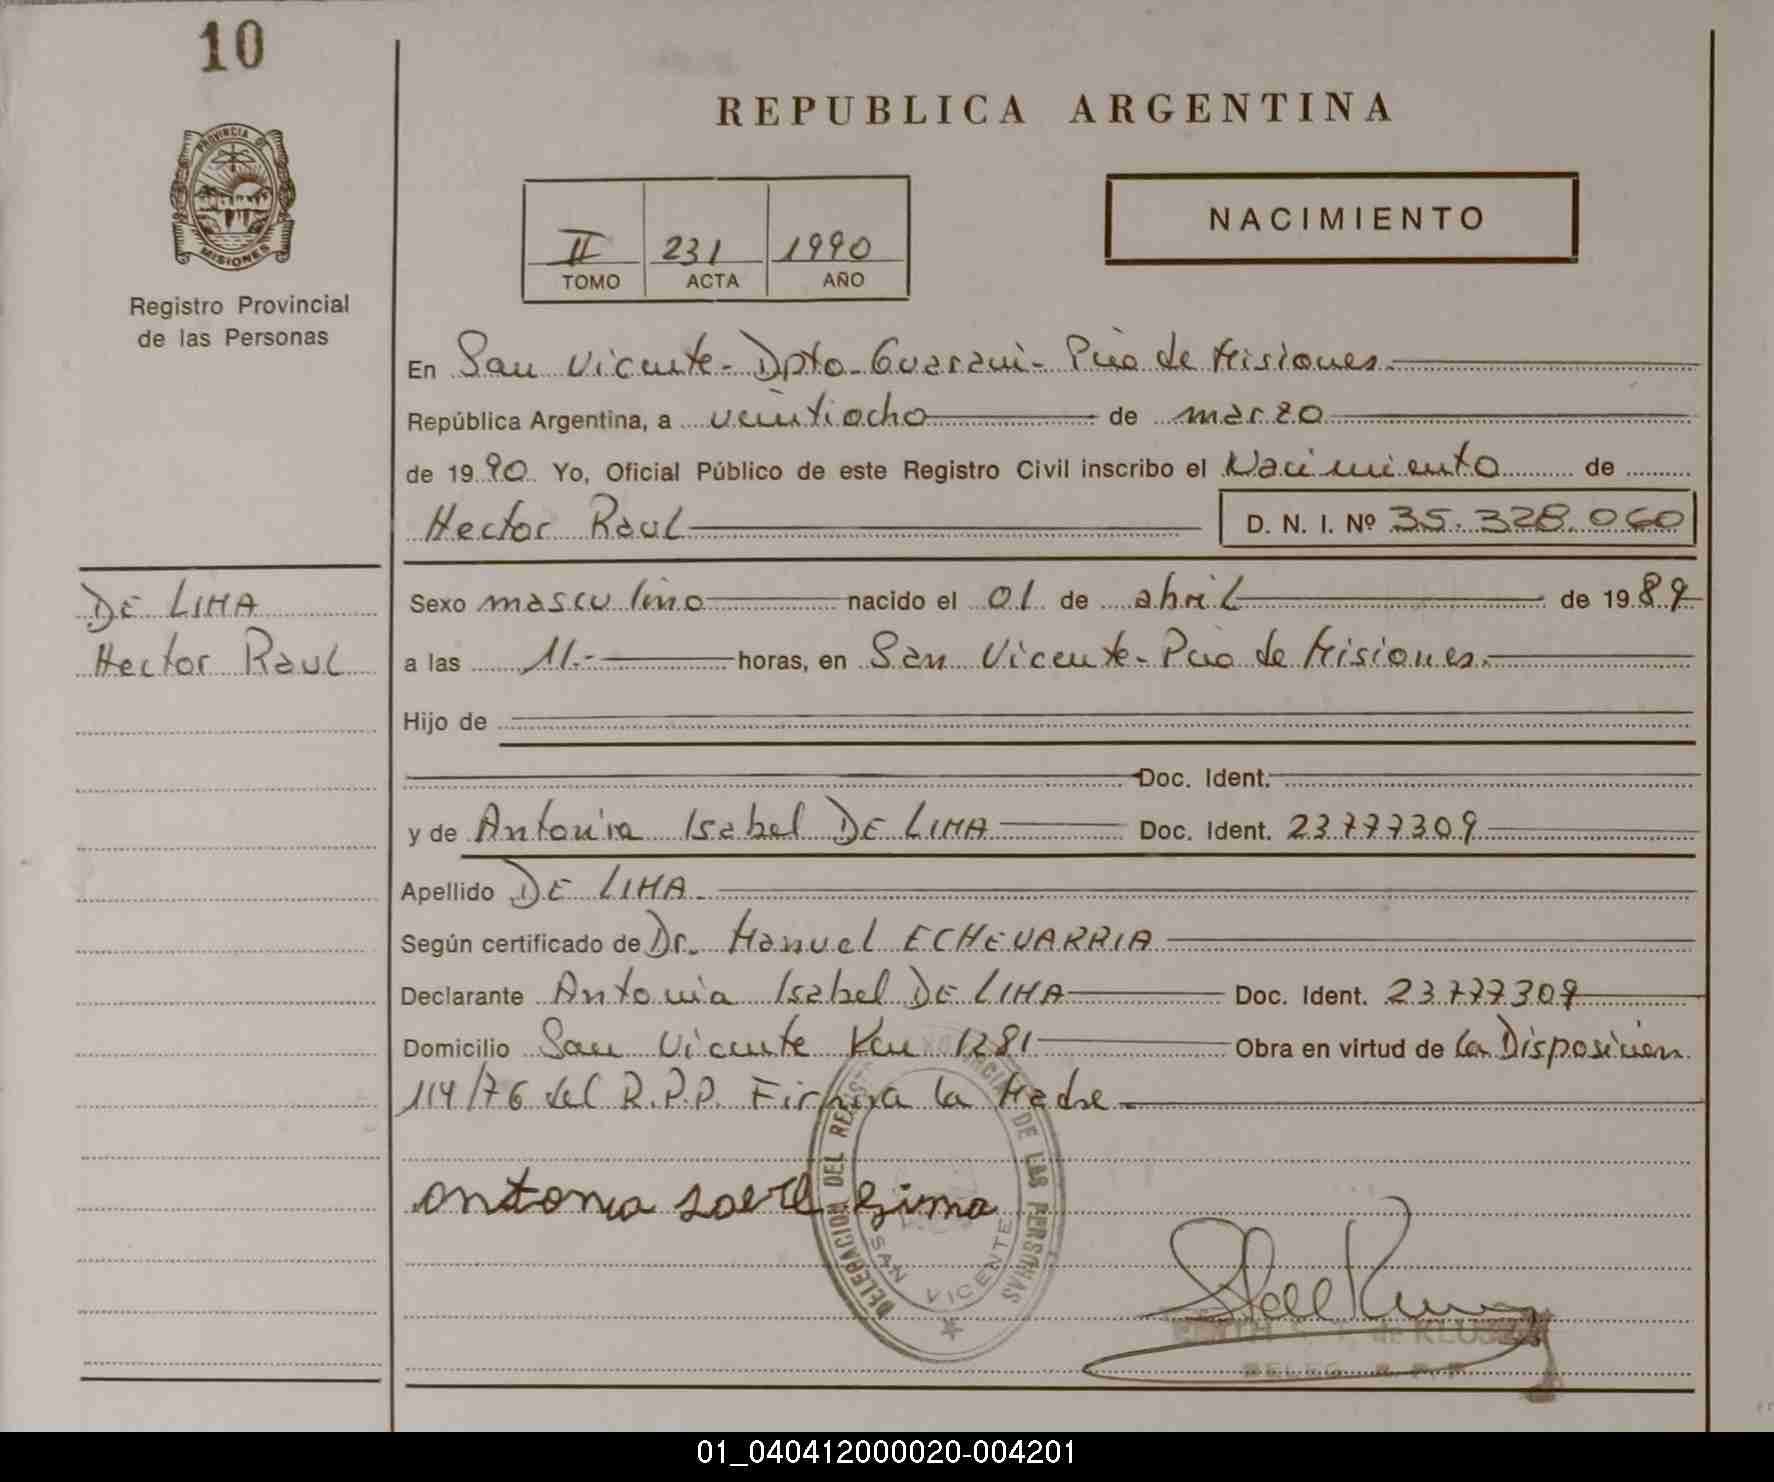 10
REPUBLICA ARGENTINA
PROVINCIA DE
MISIONES
Registro Provincial
de las Personas
II 231 1990
TOMO ACTA AÑO
NACIMIENTO
En San Vicente - Dpto. Guarani - Pcia de Misiones.
República Argentina, a veintiocho de marzo
de 1990 Yo, Oficial Público de este Registro Civil inscribo el Nacimiento de
Hector Raul D. N. I. Nº 35.328.060
DE LIMA
Hector Raul
Sexo masculino nacido el 01 de abril de 1989
a las 11.- horas, en San Vicente - Pcia de Misiones.
Hijo de
Doc. Ident.
y de Antonia Isabel DE LIMA Doc. Ident. 23777309
Apellido DE LIMA.
Según certificado de Dr. Manuel ECHEVARRIA
Declarante Antonia Isabel DE LIMA Doc. Ident. 23.777309
Domicilio San Vicente Km 1281 Obra en virtud de la Disposicion
114/76 del R.P.P. Firma la Madre.
DELEGACION DEL DE LAS PERSONAS
SAN VICENTE
DELEG. R. P. P.
01_040412000020-004201